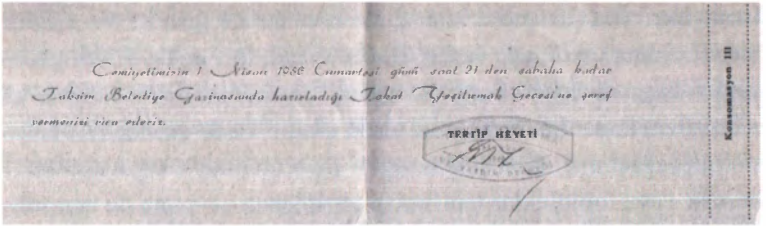 Cemiyetimizin 1 Nisan 1950 Cumartesi günü saat 21 den sabaha kadar
Taksim Belediye Gazinosunda hazırladığı Tokat Yeşilırmak Gecesi'ne şeref
vermenizi rica ederiz.
TERTİP HEYETİ
Konsomasyon III